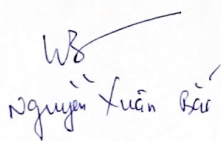 Nguyễn Xuân Bắc